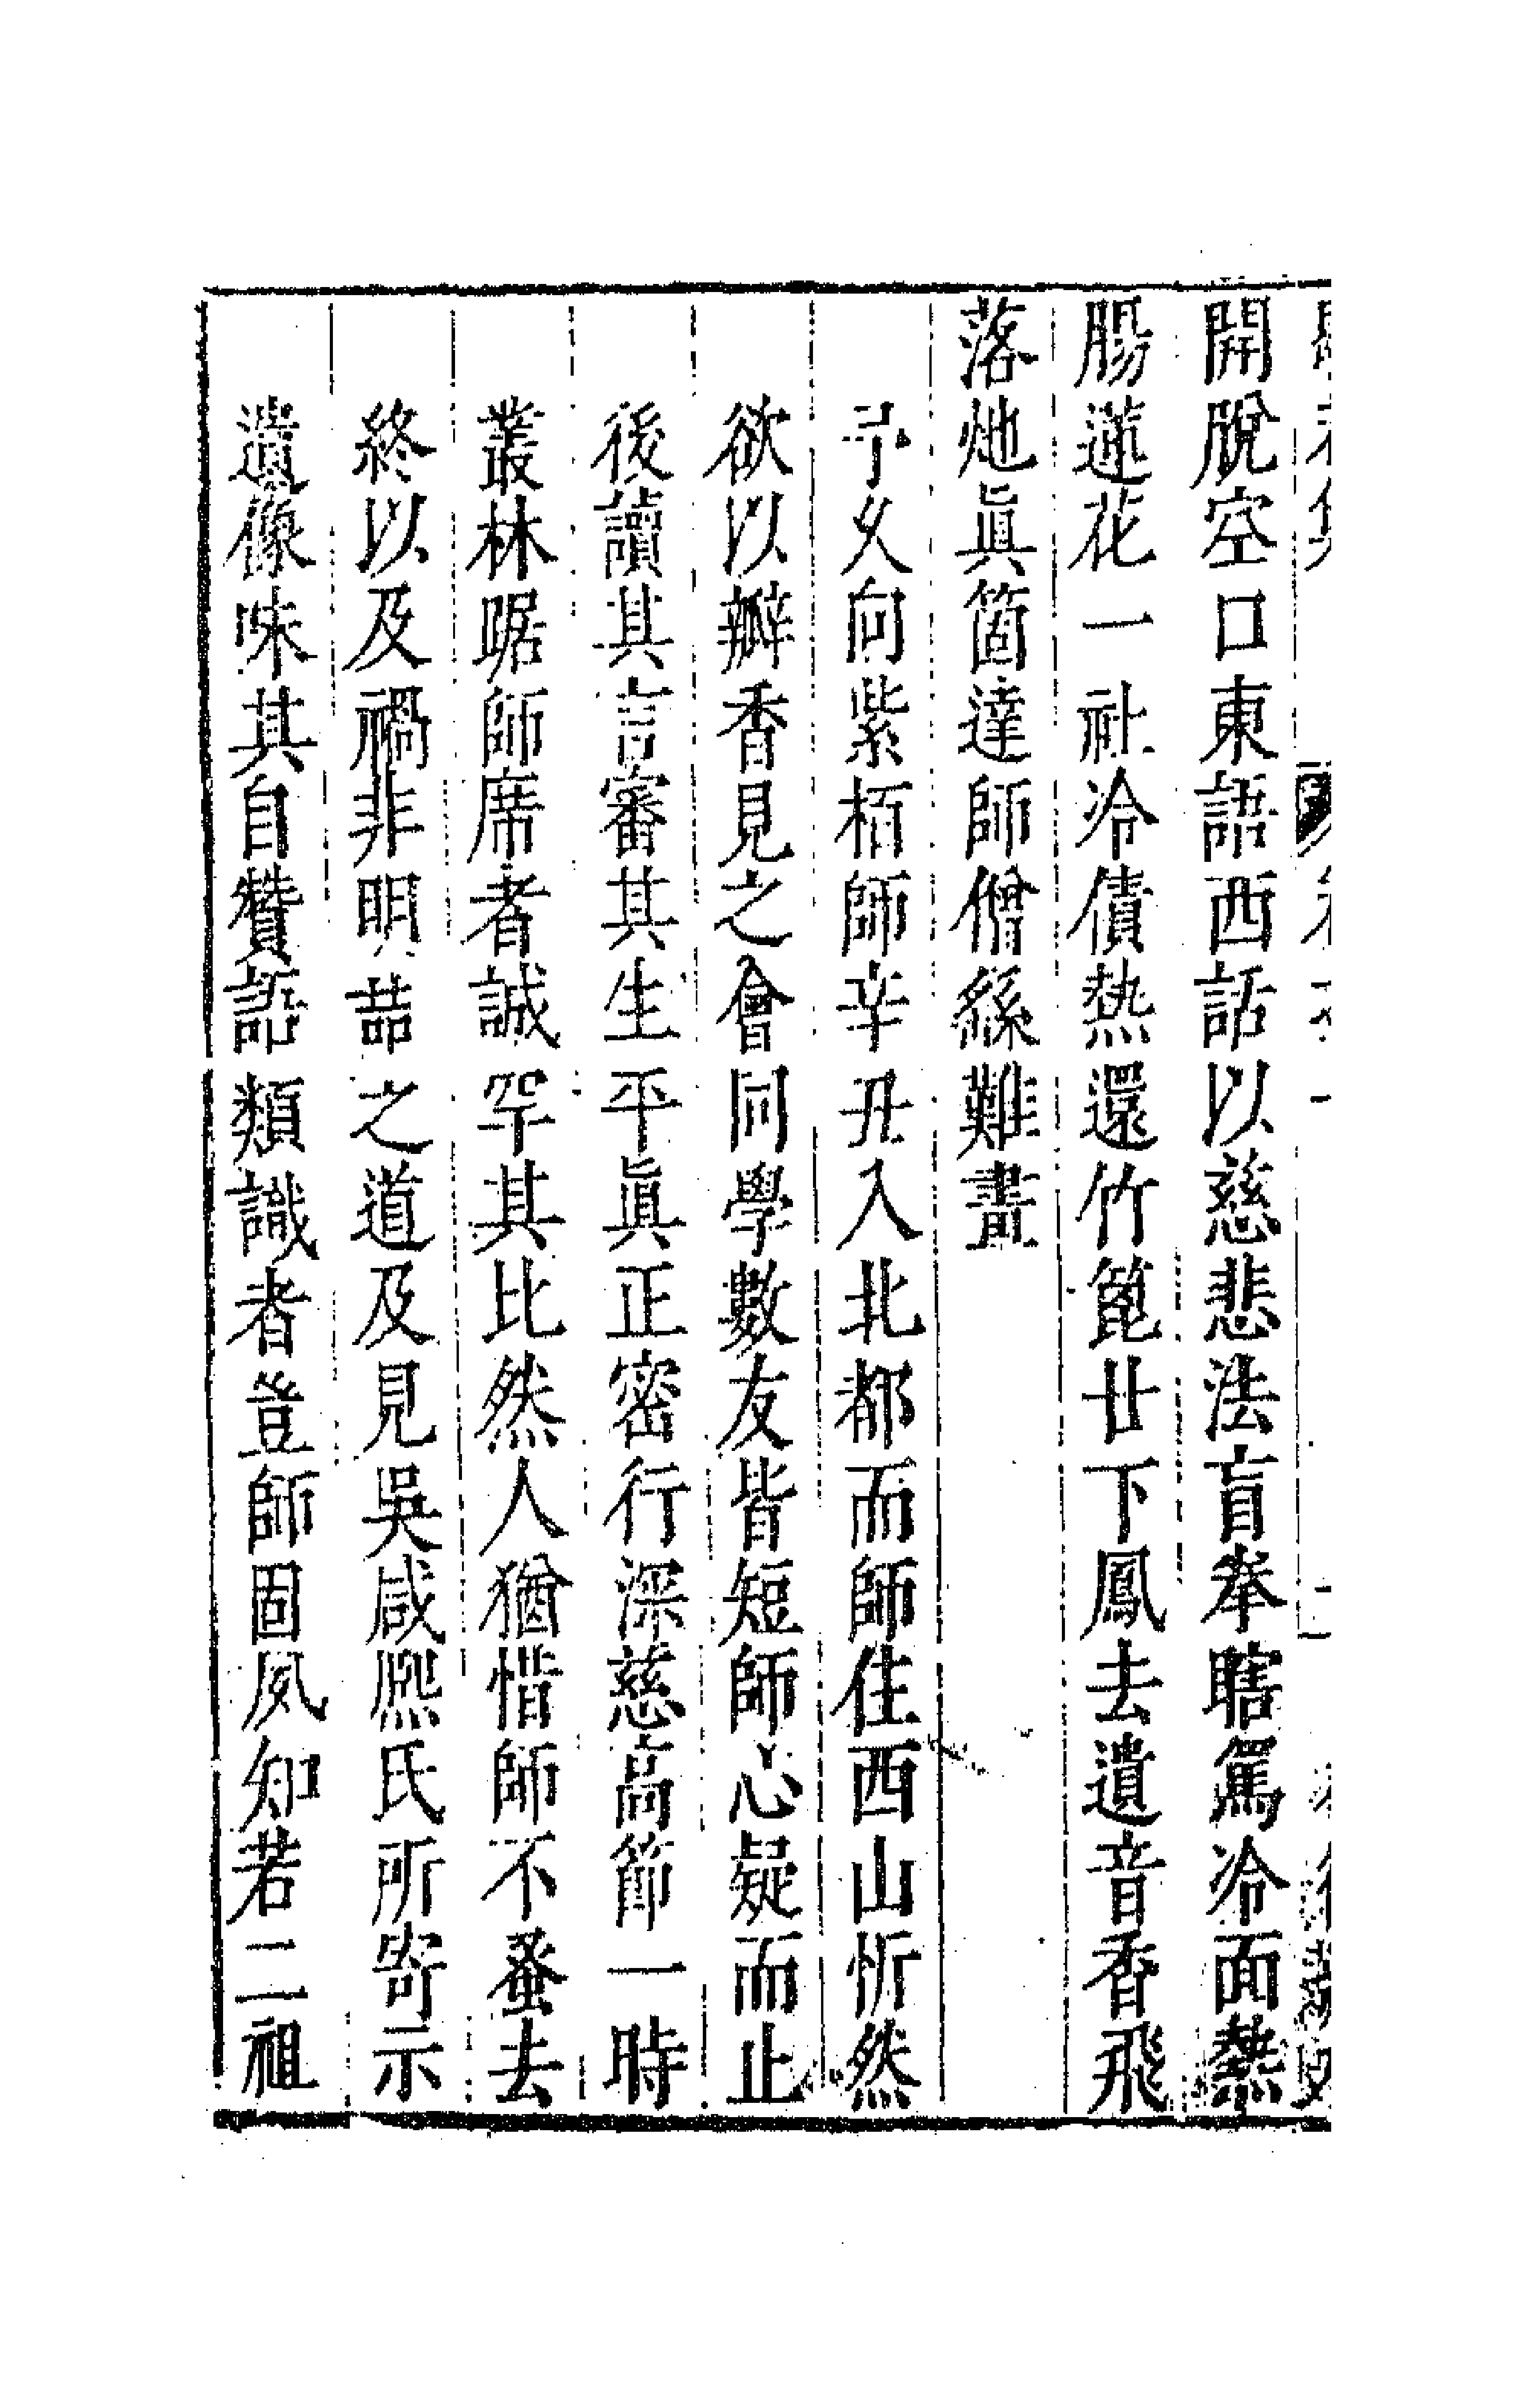 開脫空口東語西話以慈悲法盲拳瞎罵冷面熱
腸蓮花一社冷債熱還竹篦廿下鳳去遺音香飛
落灺眞箇達師僧繇難畫
予久向紫栢師辛丑入北都而師住西山忻然
欲以瓣香見之會同學數友皆短師心疑而止
後讀其言審其生平眞正密行深慈高節一時
叢林踞師席者誠罕其比然人猶惜師不蚤去
終以及禍非明喆之道及見吳咸熈氏所寄示
遺像味其自贊語類識者豈師固夙知若二祖